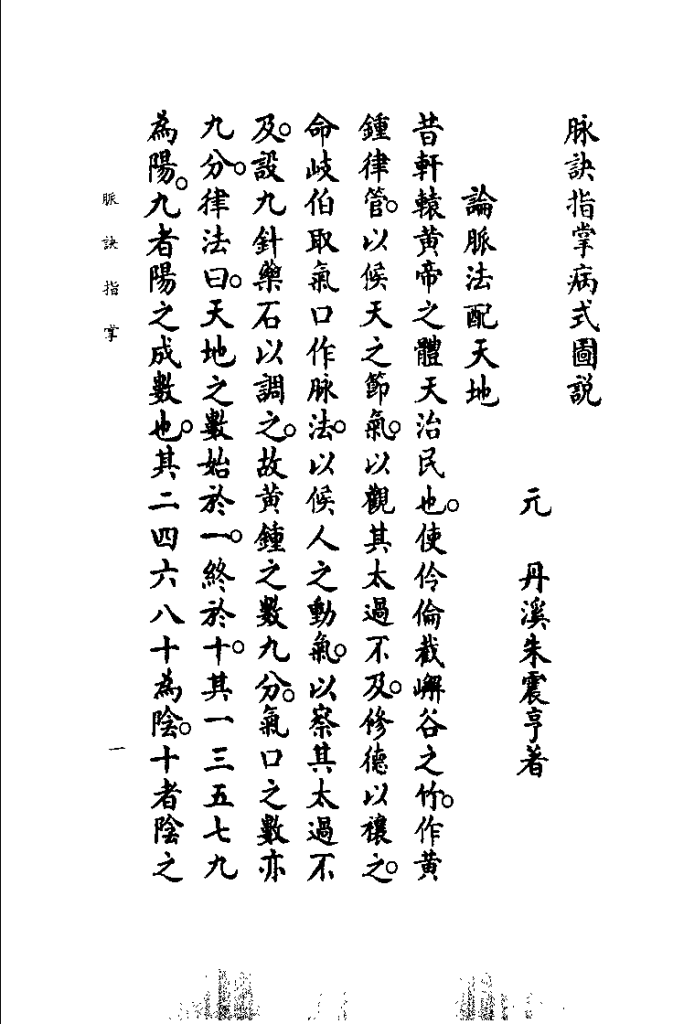 脉訣指掌病式圖説
元　丹溪朱震亨著
論脈法配天地
昔軒轅黄帝之體天治民也。使伶倫截嶰谷之竹。作黄
鍾律管。以候天之節氣。以觀其太過不及。修德以禳之。
命岐伯取氣口作脉法。以候人之動氣。以察其太過不
及。設九針藥石以調之。故黄鍾之數九分。氣口之數亦
九分。律法曰。天地之數始於一。終於十。其一三五七九
為陽。九者陽之成數也。其二四六八十為陰。十者陰之
脈訣指掌
一